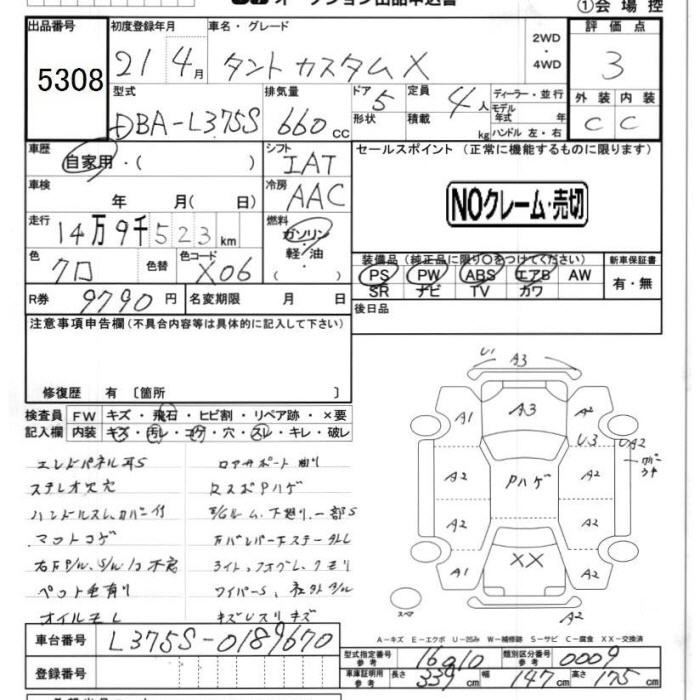 オークション出品申込書
①会場控
出品番号
5308
初度登録年月
21 4月
車名・グレード
タント カスタムX
2WD
・
4WD
評価点
3
型式
DBA-L375S
排気量
660 cc
ドア
5
形状
定員
4人
積載
kg
ディーラー・並行
モデル年式 年
ハンドル 左・右
外装
内装
C
C
車歴
自家用・( )
シフト
IAT
セールスポイント (正常に機能するものに限ります)
NOクレーム・売切
車検
年 月( 日)
冷房
AAC
走行
14万9千523km
燃料
ガソリン
軽・油
色
クロ
色替
色コード
X06
装備品 (純正品に限り○をつけてください)
PS PW ABS エアB AW
SR ナビ TV カワ
新車保証書
有・無
R券
9790円
名変期限 月 日
後日品
注意事項申告欄 (不具合内容等は具体的に記入して下さい)
修復歴 有 〔箇所 〕
検査員
記入欄
FW キズ・飛石・ヒビ割・リペア跡・×要
内装 キズ・汚レ・コゲ・穴・スレ・キレ・破レ
エンドパネル耳S
ステレオ欠穴
ハンドルスレ、カバー付
マットコゲ
ペット毛有り
オイルモレ
ロアサポート曲り
ライト、フォグレ、クモリ
キズUスリキズ
U1
A3
A1
A3
A2
U3
UA2
A2
Pハゲ
A2
A2
A2
A1
XX
A2
A2
スペア
A-キズ E-エクボ U-凹み W-補修跡 S-サビ C-腐食 XX-交換済
車台番号
L375S-0189670
登録番号
型式指定番号
参考
16910
類別区分番号
参考
0009
車庫証明用
参考
長さ 339cm
幅 147cm
高さ 175cm